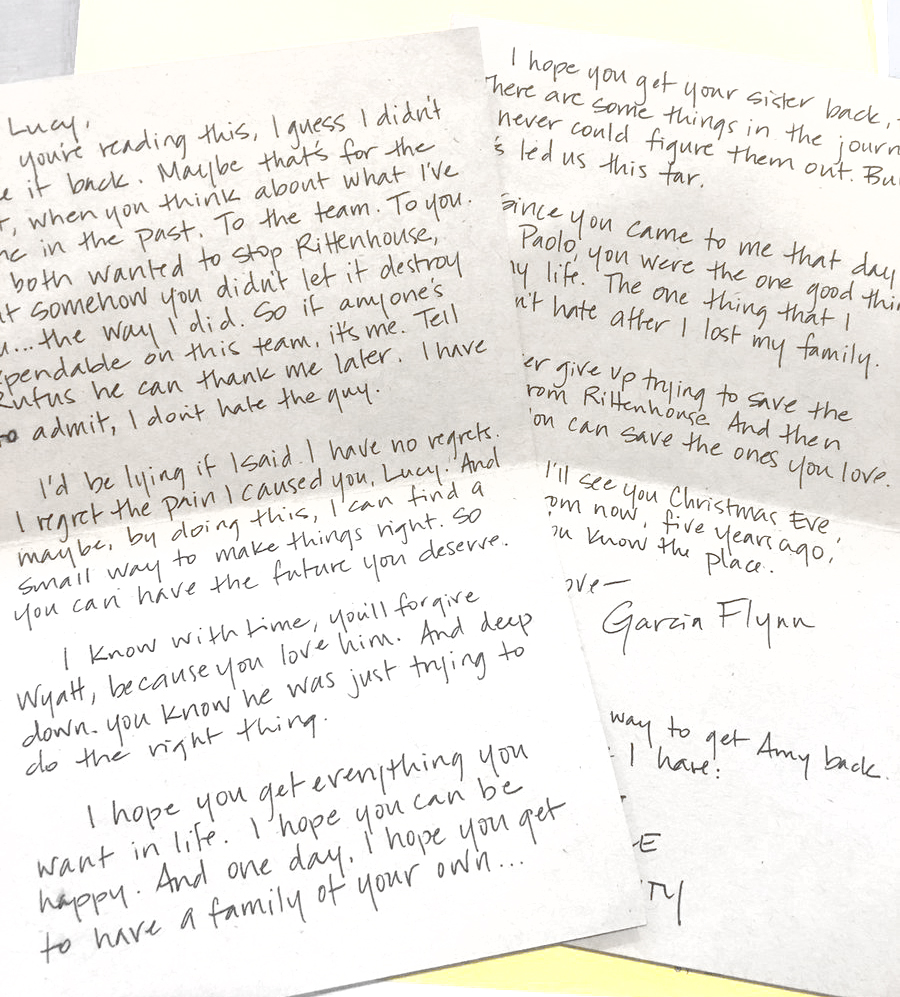 Lucy,
you're reading this, I guess I didn't
it back. Maybe that's for the
when you think about what I've
in the past. To the team. To you.
both wanted to stop Rittenhouse,
somehow you didn't let it destroy
...the way I did. So if anyone's
on this team, it's me. Tell
Rufus he can thank me later. I have
to admit, I don't hate the guy.
I'd be lying if I said I have no regrets.
I regret the pain I caused you, Lucy. And
maybe, by doing this, I can find a
small way to make things right. So
you can have the future you deserve.
I know with time, you'll forgive
Wyatt, because you love him. And deep
down. you know he was just trying to
do the right thing.
I hope you get everything you
want in life. I hope you can be
happy. And one day, I hope you get
to have a family of your own...
I hope you get your sister back,
There are some things in the
never could figure them out.
led us this far.
Since you came to me that day
Paolo, you were the one good
life. The one thing that I
hate after I lost my family.
give up trying to save the
Rittenhouse. And then
can save the ones you love.
I'll see you Christmas Eve,
now, five years ago,
know the place.
Garcia Flynn
way to get Amy back.
I have: